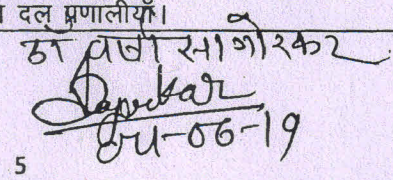 दल प्रणालीयाँ।
डॉ वर्षा सागोरकर
Sagorkar
04-06-19
5